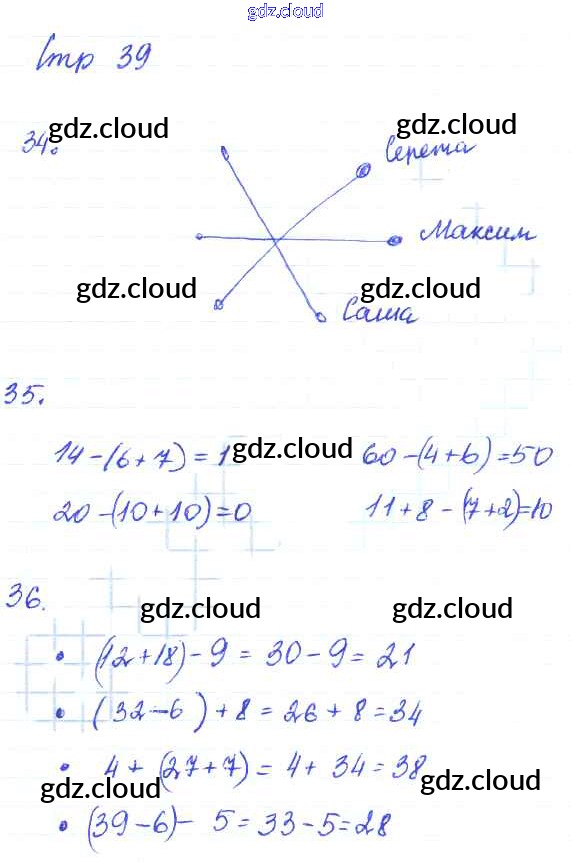 gdz.cloud
Стр 39
34.
gdz.cloud
gdz.cloud
Сережа
Максим
gdz.cloud
gdz.cloud
Саша
35.
14-(6+7)=1
gdz.cloud
60-(4+6)=50
20-(10+10)=0
11+8-(7+2)=10
36.
gdz.cloud
gdz.cloud
• (12+18)-9=30-9=21
• (32-6)+8=26+8=34
• 4+(27+7)=4+34=38
gdz.cloud
gdz.cloud
• (39-6)-5=33-5=28